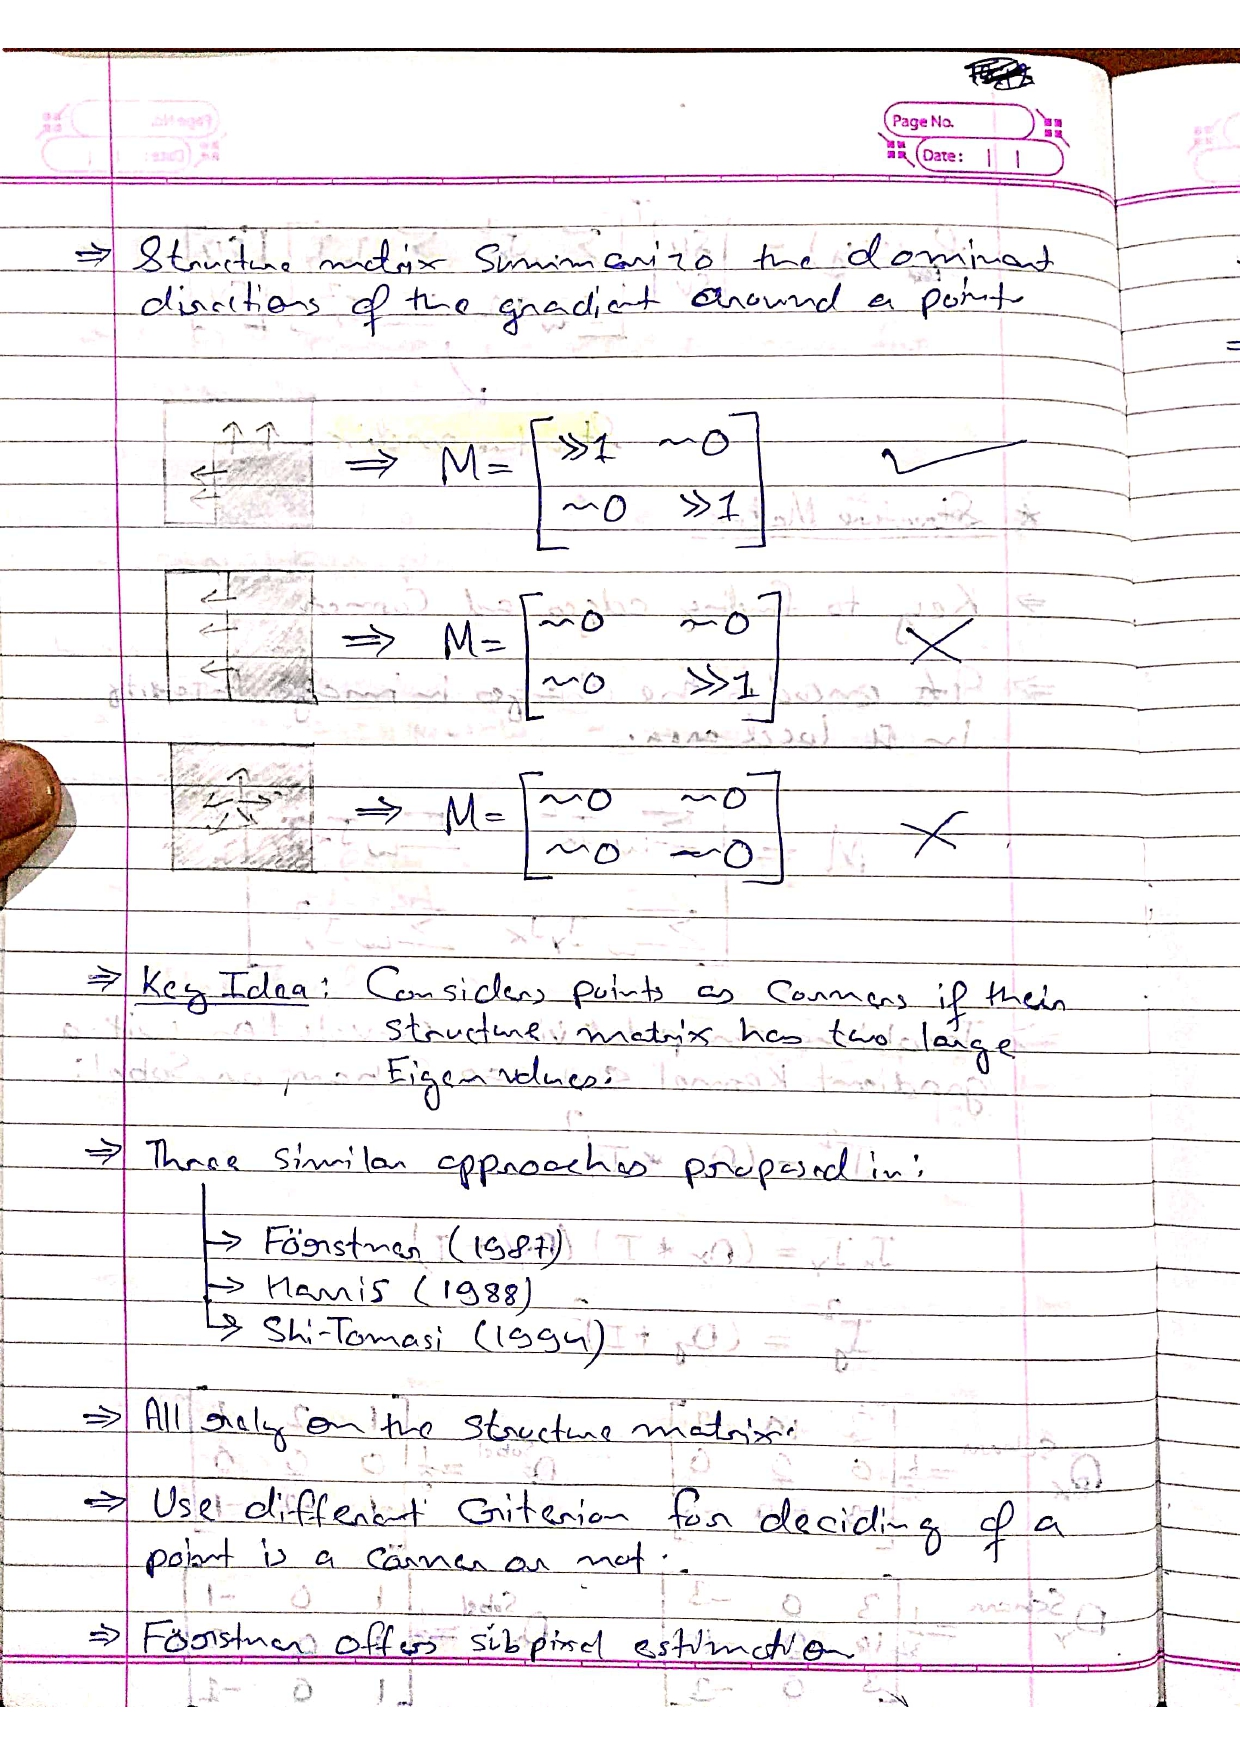 Page No.
Date:
⇒ Structure matrix Summarizes the dominant
directions of the gradient around a point
⇒ M = [ ≫1 ~0
~0 ≫1 ] ✓
⇒ M = [ ~0 ~0
~0 ≫1 ] ✗
⇒ M = [ ~0 ~0
~0 ~0 ] ✗
⇒ Key Idea: Considers points as Corners if their
structure matrix has two large
Eigenvalues.
⇒ Three similar approaches proposed in:
→ Förstner (1987)
→ Harris (1988)
→ Shi-Tomasi (1994)
⇒ All rely on the structure matrix.
⇒ Use different Criterion for deciding of a
point is a corner or not.
⇒ Förstner offers subpixel estimation